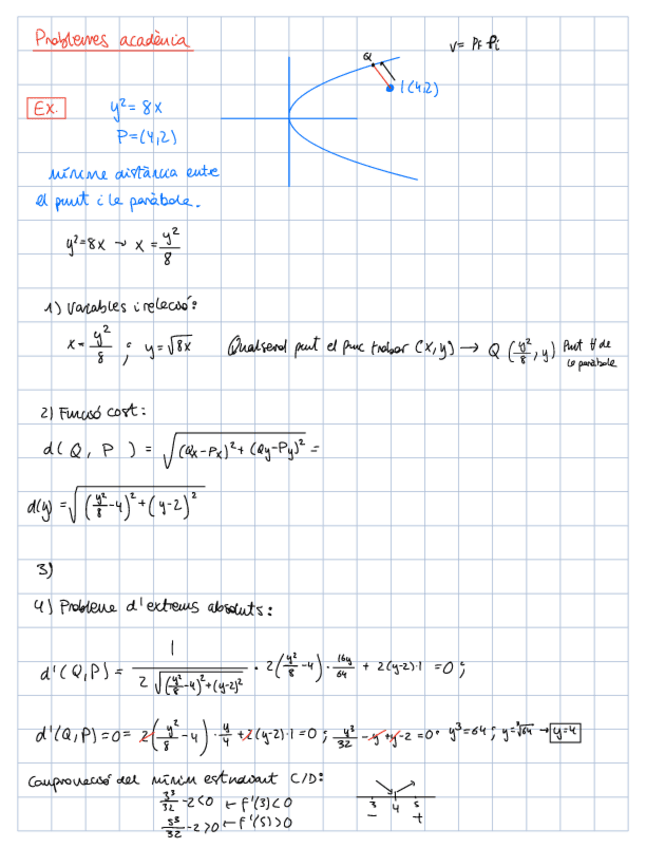 Problemes acadèmia
V= Pf Pi
Q
(4,2)
Ex. y² = 8x
P=(4,2)
mínima distància entre
el punt i la paràbola.
y²=8x → x = y²/8
1) Variables i relació:
x = y²/8 ; y=√8x Qualsevol punt el puc trobar (x,y) → Q (y²/8, y) Punt ∀ de
la paràbola
2) Funció cost:
d( Q, P ) = √(Qx-Px)²+(Qy-Py)² =
d(y) = √(y²/8-4)²+(y-2)²
3)
4) Problema d'extrems absoluts:
d'(Q,P) = 1/(2√(y²/8-4)²+(y-2)²) · 2(y²/8-4)·16y/64 + 2(y-2)·1 =0 ;
d'(Q,P)=0= 2(y²/8-4)·y/4+2(y-2)·1=0 ; y³/32-y+y-2=0· y³=64 ; y=∛64 → y=4
Comprovació del mínim estudiant C/D:
3³/32-2<0 ← f'(3)<0
5³/32-2>0 ← f'(5)>0
3 4 5
- +